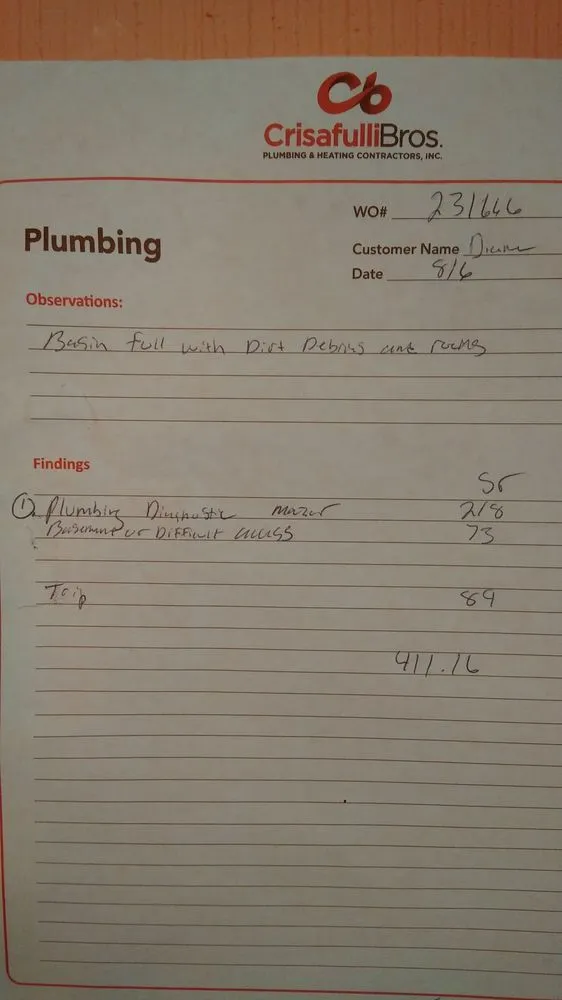 Cb
CrisafulliBros.
PLUMBING & HEATING CONTRACTORS, INC.
WO# 231646
Plumbing
Customer Name
Date 8/6
Observations:
Basin full with Dirt Debries and rocks
Findings
① Plumbing Diagnostic 218
Basement or Difficult access 73
Trip 89
411.16